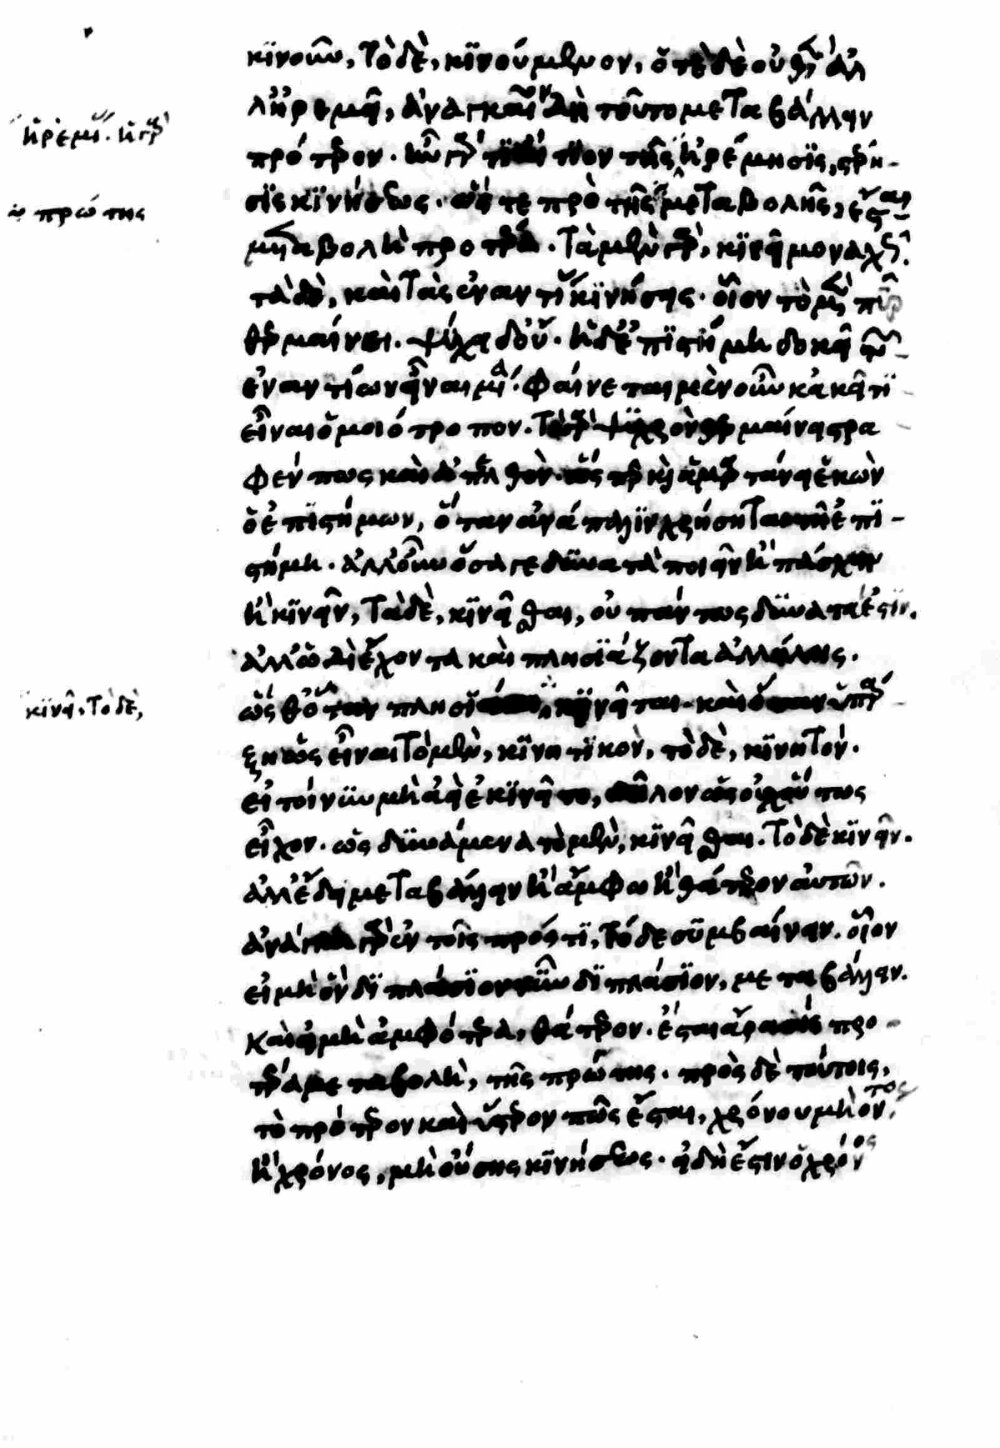 κϊνοῦν, τὸ δὲ, κϊνούμενον, ὅτε δὲ οὐθέν ἀλ
λ' ἠρεμεῖ, ἀναγκαῖον δὴ τοῦτο μεταβάλλειν
ἠρεμεῖ. ἡ γὰρ
πρότερον. ἦν γάρ τϊ αἴτιον τῆς ἠρεμήσϊς, στέρη-
σϊς κϊνήσεως. ὥστε πρὸ τῆς μεταβολῆς, ἔσται
πρώτης
μεταβολὴ προτέρα. τὰ μὲν γὰρ, κϊνεῖ μοναχῶς.
τὰ δὲ, καὶ τὰς ἐναντίας κϊνήσεις. οἷον τὸ μὲν πῦρ
θερμαίνει. ψύχει δ' οὔ. ἡ δ' ἐπϊστήμη δοκεῖ τῶν
ἐναντίων εἶναι μία. φαίνεται μὲν οὖν κἀκεῖ τϊ
εἶναι ὁμοιότροπον. τὸ γὰρ ψυχρὸν θερμαίνει στρα
φέν πως καὶ ἀπελθὸν. ὥσπερ καὶ ἁμαρτάνει ἑκὼν
ὁ ἐπϊστήμων, ὅταν ἀνάπαλϊν χρήσηται τῆ ἐπϊ-
στήμη. ἀλλ' οὖν ὅσα γε δύναται ποιεῖν ἢ πάσχειν
ἢ κϊνεῖν, τὰ δὲ, κϊνεῖσθαι, οὐ πάντως δύνατά ἐστϊν.
ἀλλ' ὡδὶ ἔχοντα καὶ πλησϊάζοντα ἀλλήλοις.
κϊνεῖ, τὸ δὲ,
ὥσθ' ὅταν πλησϊάση, κϊνεῖται. καὶ ὅταν ὑπάρ
ξη ὡς εἶναι τὸ μὲν, κϊνητϊκὸν, τὸ δὲ, κϊνητόν.
εἰ τοίνυν μὴ ἀεὶ ἐκϊνεῖτο, δῆλον ὡς οὐχ οὕτως
εἶχον. ὡς δϋνάμενα τὸ μὲν, κϊνεῖσθαι. τὸ δὲ κϊνεῖν.
ἀλλ' ἔδει μεταβάλλειν ἢ ἄμφω ἢ θάτερον αὐτῶν.
ἀνάγκη γὰρ ἐν τοῖς πρός τϊ, τόδε σϋμβαίνειν. οἷον
εἰ μὴ ὂν δϊπλάσϊον νῦν δϊπλάσϊον, μεταβάλλειν.
καὶ εἰ μὴ ἀμφότερα, θάτερον. ἔσται ἄρα τις προ-
τέρα μεταβολὴ, τῆς πρώτης. πρὸς δὲ τούτοις,
τὸ πρότερον καὶ ὕστερον πῶς ἔσται, χρόνου μὴ ὄντος,
ἢ χρόνος, μὴ οὔσης κϊνήσεως. εἰ δὴ ἐστιν ὁ χρόνος